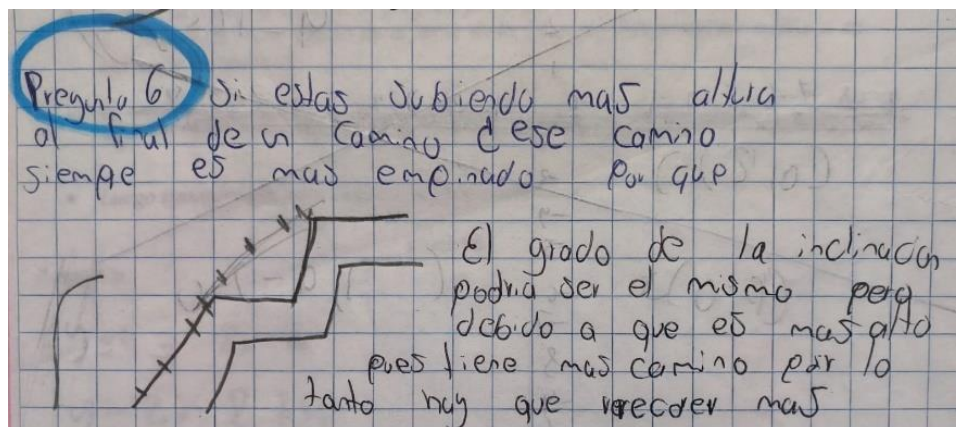 Pregunta 6 Si estas subiendo mas altura
al final de un camino ¿ese camino
siempre es mas empinado Por que
El grado de la inclinacion
podria ser el mismo pero
debido a que es mas alto
pues tiene mas camino por lo
tanto hay que recorer mas